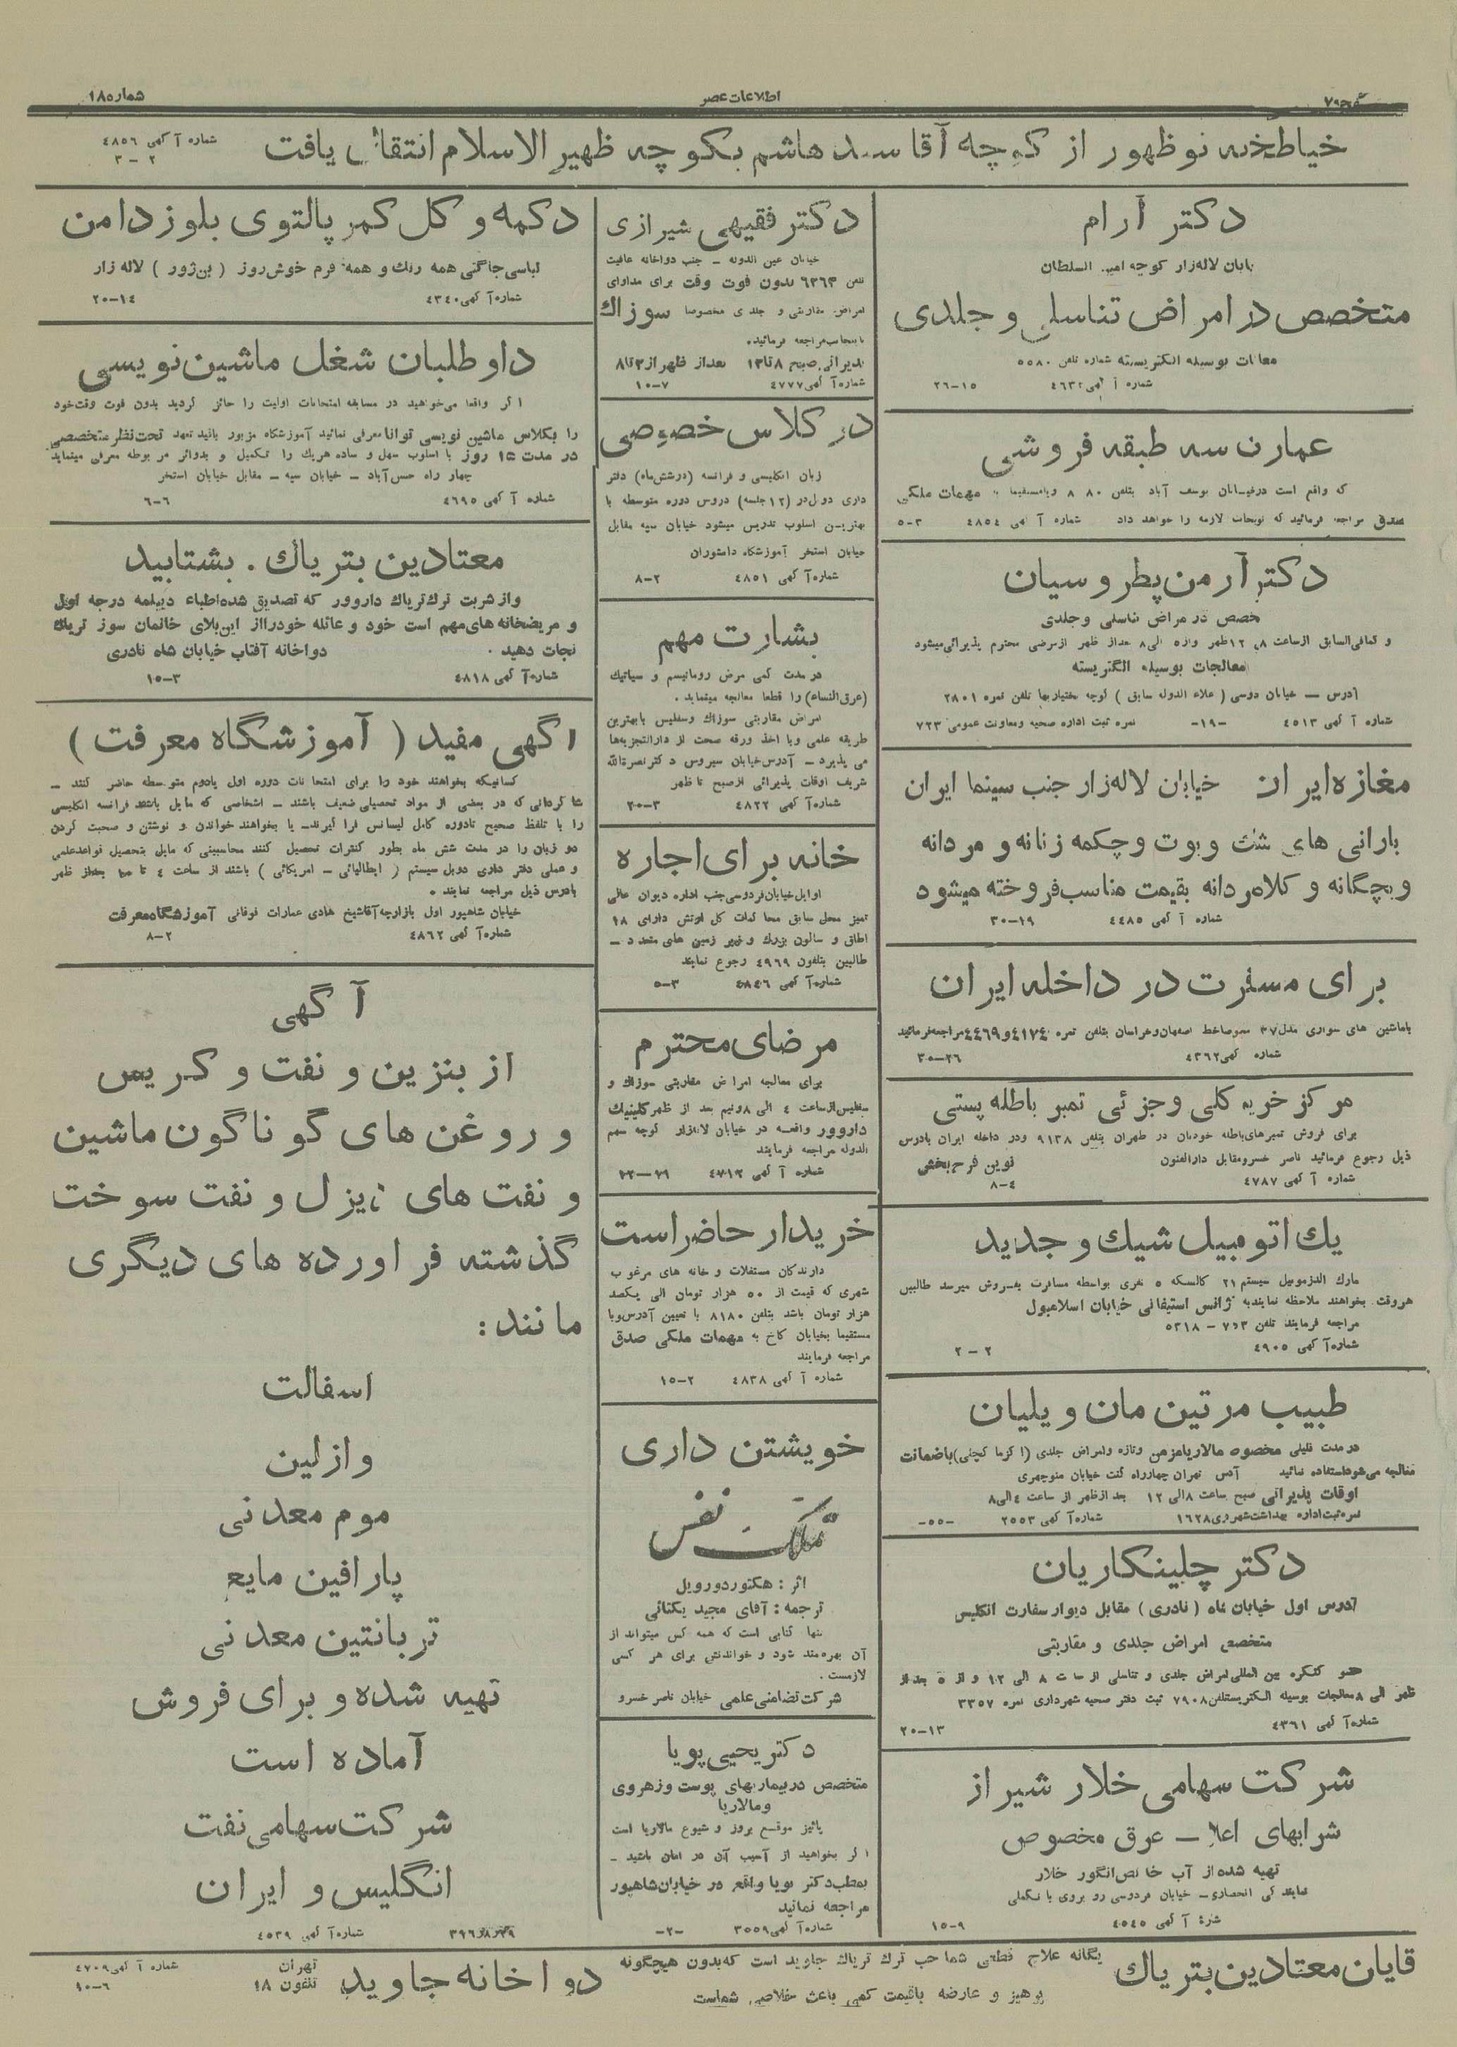 شماره ۱۸۵
اطلاعات عصر
خیاطخانه نوظهور از کوچه آقا سید هاشم بکوچه ظهیر الاسلام انتقال یافت
شماره آگهی ۴۸۵۶
۲ – ۳
دکتر آرام
متخصص در امراض تناسلی و جلدی
معالجات بوسیله الکتریسته شماره تلفن ۵۵۸۰
۱۵–۲۶
سه طبقه فروشی
صدق مراجعه فرمائید که توضیحات لازمه را خواهد داد شماره آگهی ۴۸۵۴ ۳–۵
دکتر آرمن پطروسیان
معالجات بوسیله الکتریسته
آدرس — خیابان فردوسی (علاء الدوله سابق) کوچه بختیاریها تلفن نمره ۲۸۰۱
شماره آگهی ۴۵۱۳ –۱۹– نمره ثبت اداره صحیه ومعاونت عمومی ۷۲۳
مغازه ایران خیابان لاله‌زار جنب سینما ایران
و بوت و چکمه زنانه و مردانه
و بچگانه و کلاه مردانه بقیمت مناسب فروخته میشود
شماره آگهی ۴۴۸۵ ۱۹–۳۰
برای مسافرت در داخله ایران
۲۶–۳۰
مرکز خرید کلی و جزئی تمبر باطله پستی
برای فروش تمبرهای باطله خودتان در طهران بتلفن ۹۱۳۸ ودر داخله ایران بادرس
ذیل رجوع فرمائید ناصر خسرو مقابل دارالفنون نوین فرح‌بخش
شماره آگهی ۴۷۸۷ ۴–۸
یك اتومبیل شیك و جدید
هروقت بخواهند ملاحظه نمایند به آژانس استیفانی خیابان اسلامبول
شماره آگهی ۴۹۰۵ ۲ – ۲
طبیب مرتین مان ویلیان
معالجه می‌شود استفاده نمائید آدرس تهران چهارراه کنت خیابان منوچهری
اوقات پذیرائی صبح ساعت ۸ الی ۱۲ بعد از ظهر از ساعت ٤ الی ۸
نمره ثبت اداره بهداشت شهروری ۱۶۲۸ شماره آگهی ۲۵۵۳ –۵۵–
دکتر چلینکاریان
آدرس اول خیابان شاه (نادری) مقابل دیوار سفارت انگلیس
متخصص امراض جلدی و مقاربتی
شماره آگهی ۴۳۶۱ ۱۳–۲۰
شرکت سهامی خلار شیراز
شرابهای اعلا — عرق مخصوص
تهیه شده از آب خالص انگور خلار
۹–۱۵
دکتر فقیهی شیرازی
خیابان عین الدوله – جنب دواخانه عافیت
تلفن ۶۳۶۳ بدون فوت وقت برای مداوای
امراض مقاربتی و جلدی مخصوصا سوزاك
باینجانب مراجعه فرمائید.
شماره آگهی ۴۷۷۷ ۷–۱۰
در کلاس خصوصی
زبان انگلیسی و فرانسه (در شش ماه) دفتر
داری دوبل در (۱۲ جلسه) دروس دوره متوسطه با
بهترین اسلوب تدریس میشود خیابان سپه مقابل
خیابان استخر آموزشگاه دانشوران
شماره آگهی ۴۸۵۱ ۲–۸
بشارت مهم
در مدت کمی مرض روماتیسم و سیاتیك
(عرق‌النساء) را قطعا معالجه مینماید.
امراض مقاربتی سوزاك وسفلیس بابهترین
طریقه علمی وبا اخذ ورقه صحت از دارالتجزیه‌ها
می پذیرد – آدرس خیابان سیروس دکتر نصرت‌الله
شریف اوقات پذیرائی از صبح تا ظهر
شماره آگهی ۴۸۲۲ ۳–۲۰
خانه برای اجاره
اوایل خیابان فردوسی جنب اداره دیوان عالی
تمیز محل سابق محاکمات کل ارتش دارای ۱۸
اطاق و سالون بزرك و زیر زمین های متعدد –
طالبین بتلفون ۴۹۶۹ رجوع نمایند
شماره آگهی ۴۸۴۶ ۳–۵
مرضای محترم
برای معالجه امراض مقاربتی سوزاك و
سفلیس از ساعت ٤ الی ۸ ونیم بعد از ظهر کلینیك
داروور واقعه در خیابان لاله‌زار کوچه مهم
الدوله مراجعه فرمایند
خریدار حاضر است
دارندگان مستغلات و خانه های مرغوب
شهری که قیمت از ۵۰ هزار تومان الی یکصد
هزار تومان باشد بتلفن ۸۱۸۰ با تعیین آدرس و یا
مستقیما بخیابان کاخ به مهمات ملکی صدق
مراجعه فرمایند
شماره آگهی ۴۸۳۸ ۲–۱۵
خویشتن داری
تملك نفس
اثر : هکتور دورویل
ترجمه : آقای مجید یکتائی
تنها کتابی است که همه کس میتواند از
آن بهره‌مند شود و خواندنش برای هر کسی
لازمست.
شرکت تضامنی علمی خیابان ناصر خسرو
دکتر یحیی پویا
متخصص در بیماریهای پوست و زهروی
ومالاریا
پائیز موقع بروز و شیوع مالاریا است
اگر بخواهید از آسیب آن در امان باشید –
بمطب دکتر پویا واقع در خیابان شاهپور
مراجعه نمائید
شماره آگهی ۳۰۵۹ –۲–
دکمه و گل کمر پالتوی بلوز دامن
لباسی جاکتی همه رنك و همه فرم خوش‌روز (بن‌ژور) لاله زار
شماره آگهی ۴۳۴۰ ۱۴–۲۰
داوطلبان شغل ماشین نویسی
اگر واقعا می‌خواهید در مسابقه امتحانات اولیت را حائز گردید بدون فوت وقت خود
را بکلاس ماشین نویسی توانا معرفی نمائید آموزشگاه مزبور باقید تعهد تحت‌نظر متخصصی
در مدت ۱۵ روز با اسلوب سهل و ساده هریك را تکمیل و بدوائر مربوطه معرفی مینماید
چهار راه حسن‌آباد – خیابان سپه – مقابل خیابان استخر
شماره آگهی ۴۶۹۵ ۶–۶
معتادین بتریاك . بشتابید
و از شربت ترك تریاك داروور که تصدیق شده اطباء دیپلمه درجه اول
و مریضخانه های مهم است خود و عائله خود را از این بلای خانمان سوز تریاك
نجات دهید . دواخانه آفتاب خیابان شاه نادری
شماره آگهی ۴۸۱۸ ۳–۱۵
آگهی مفید ( آموزشگاه معرفت )
کسانیکه بخواهند خود را برای امتحانات دوره اول یا دوم متوسطه حاضر کنند –
شاگردانی که در بعضی از مواد تحصیلی ضعیف باشند – اشخاصی که مایل باشند فرانسه انگلیسی
را با تلفظ صحیح تا دوره کامل لیسانس فرا گیرند – یا بخواهند خواندن و نوشتن و صحبت کردن
دو زبان را در مدت شش ماه بطور کنترات تحصیل کنند محاسبینی که مایل بتحصیل قواعد علمی
و عملی دفتر داری دوبل سیستم (ایطالیائی – امریکائی) باشند از ساعت ٤ تا ۱۰ بعد از ظهر
بادرس ذیل مراجعه نمایند .
خیابان شاهپور اول بازارچه آقا شیخ هادی عمارات فوقانی آموزشگاه معرفت
شماره آگهی ۴۸۶۲ ۲–۸
آگهی
از بنزین و نفت و کریس
و روغن های گوناگون ماشین
و نفت های دیزل و نفت سوخت
گذشته فراورده های دیگری
مانند :
اسفالت
وازلین
موم معدنی
پارافین مایع
تربانتین معدنی
تهیه شده و برای فروش
آماده است
شرکت سهامی نفت
انگلیس و ایران
شماره آگهی ۴۵۳۹
آقایان معتادین بتریاك
یگانه علاج قطعی شما حب ترك تریاك جاوید است که بدون هیچگونه
پرهیز و عارضه باقیمت کمی باعث خلاصی شماست
دواخانه جاوید
تهران
تلفون ۱۸
شماره آگهی ۴۷۰۹
۶–۱۰